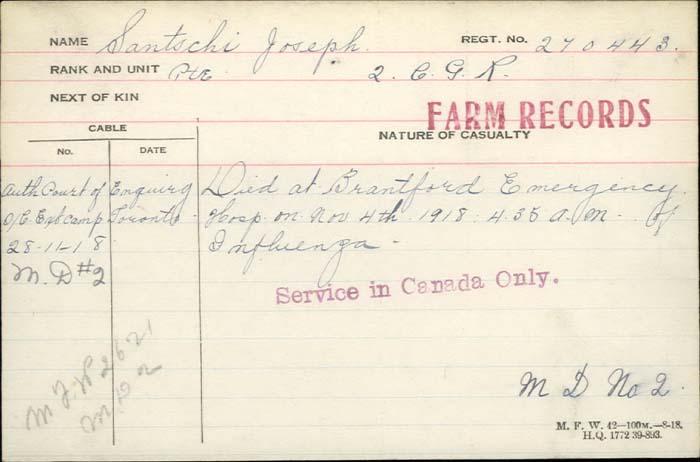 NAME Santschi Joseph. REGT. No. 270443.
RANK AND UNIT Pte 2. C. G. R.
NEXT OF KIN
FARM RECORDS
CABLE NATURE OF CASUALTY
No. DATE
Auth Court of Enquiry Died at Brantford Emergency
O/C Exb camp Toronto Hosp. on Nov 4th 1918. 4.35 a.m. of
28-11-18 Influenza -
M. D #2
Service in Canada Only.
M.F.W 2621
M.D 2
M D No 2.
M. F. W. 42—100M.—8-18.
H.Q. 1772 39-893.